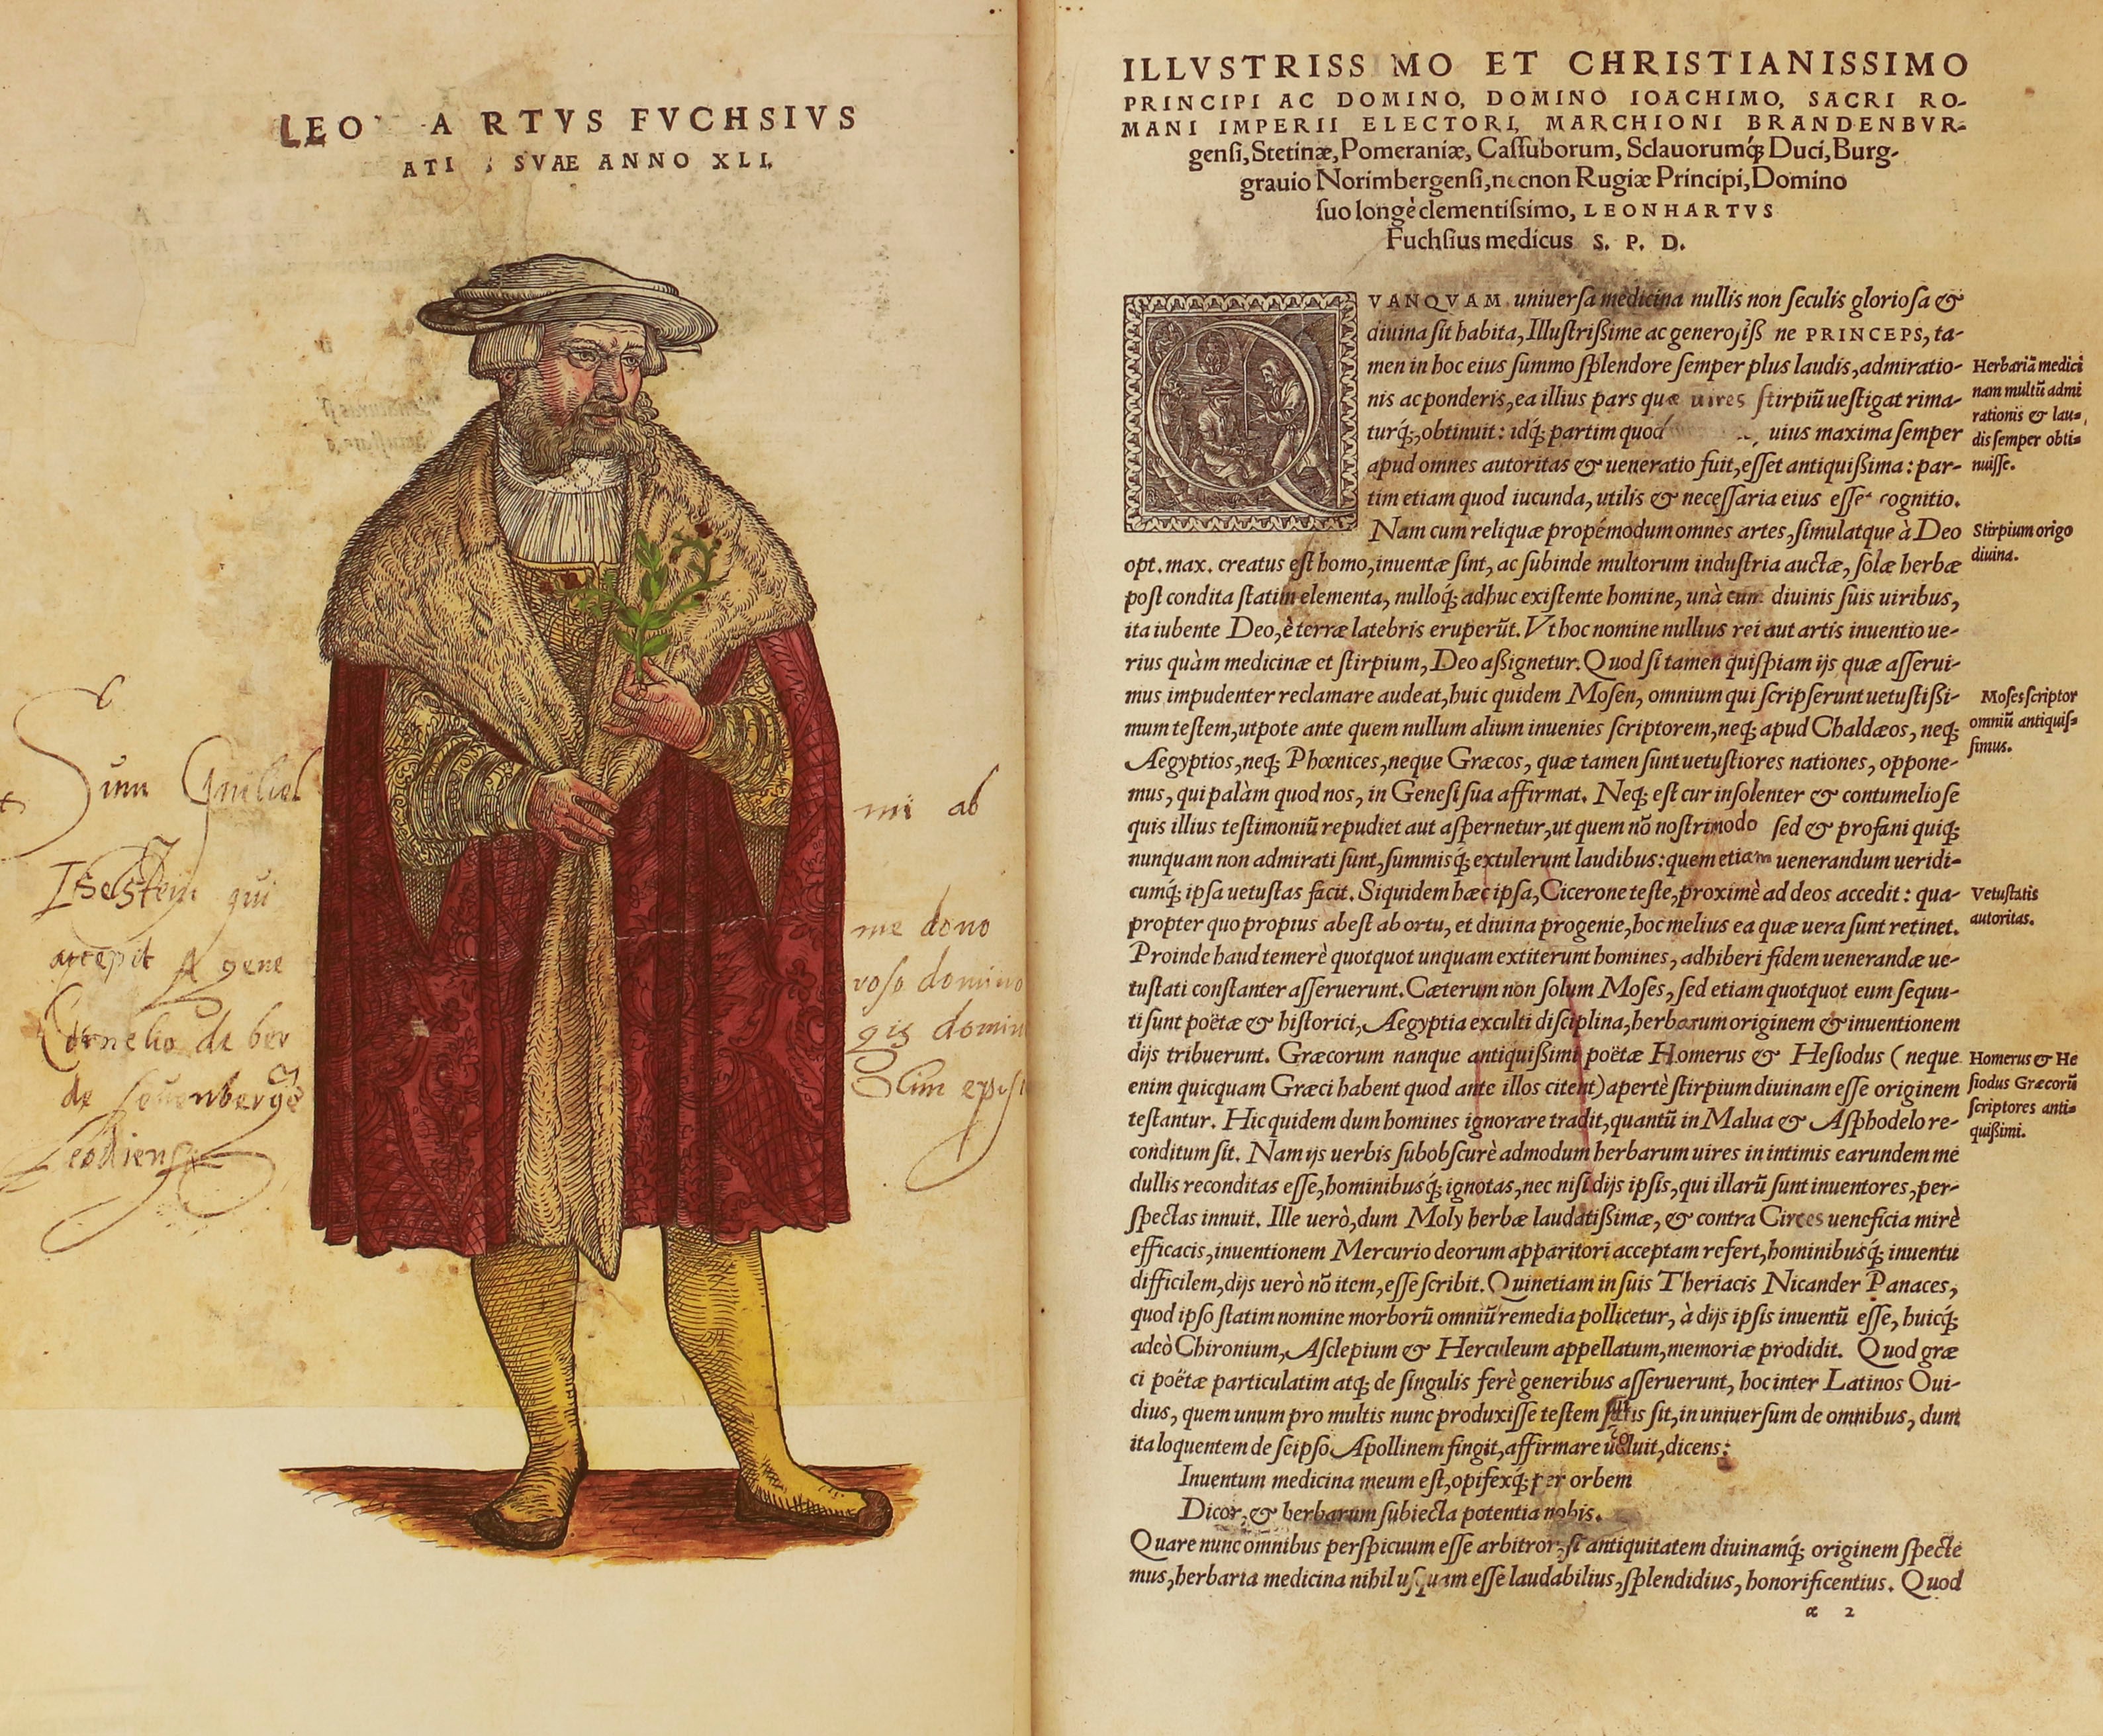 LEO A RTVS FVCHSIVS
ATI S SVAE ANNO XLI.
Sum Guiliel mi ab
Isestein qui me dono
accepit A gene roso domino
Cornelio de ber gis domin
de
Leodiens
ILLVSTRISS MO ET CHRISTIANISSIMO
PRINCIPI AC DOMINO, DOMINO IOACHIMO, SACRI RO-
MANI IMPERII ELECTORI, MARCHIONI BRANDENBVR-
genſi, Stetinæ, Pomeraniæ, Caſſuborum, Sclauorumq́; Duci, Burg-
grauio Norimbergenſi, necnon Rugiæ Principi, Domino
ſuo longè clementiſsimo, LEONHARTVS
Fuchſius medicus S. P. D.
QVANQVAM uniuerſa medicina nullis non ſeculis glorioſa &
diuina ſit habita, Illuſtrißime ac generoſiß ne PRINCEPS, ta-
men in hoc eius ſummo ſplendore ſemper plus laudis, admiratio-
nis ac ponderis, ea illius pars quæ uires ſtirpiũ ueſtigat rima-
turq́;, obtinuit: idq́; partim quod uius maxima ſemper
apud omnes autoritas & ueneratio fuit, eſſet antiquißima: par-
tim etiam quod iucunda, utilis & neceſſaria eius eſſet cognitio.
Nam cum reliquæ propémodum omnes artes, ſimulatque à Deo
opt. max. creatus eſt homo, inuentæ ſint, ac ſubinde multorum induſtria auctæ, ſolæ herbæ
poſt condita ſtatim elementa, nulloq́; adhuc exiſtente homine, unà cum diuinis ſuis uiribus,
ita iubente Deo, è terræ latebris eruperũt. Vt hoc nomine nullius rei aut artis inuentio ue-
rius quàm medicinæ et ſtirpium, Deo aßignetur. Quod ſi tamen quiſpiam ijs quæ aſſerui-
mus impudenter reclamare audeat, huic quidem Moſen, omnium qui ſcripſerunt uetuſtißi-
mum teſtem, utpote ante quem nullum alium inuenies ſcriptorem, neq; apud Chaldæos, neq;
Aegyptios, neq; Phœnices, neque Græcos, quæ tamen ſunt uetuſtiores nationes, oppone-
mus, qui palàm quod nos, in Geneſi ſua affirmat. Neq; eſt cur inſolenter & contumelioſe
quis illius teſtimoniũ repudiet aut aſpernetur, ut quem nõ noſtri modo ſed & profani quiq;
nunquam non admirati ſunt, ſummisq́; extulerunt laudibus: quem etiam uenerandum ueridi-
cumq́; ipſa uetuſtas facit. Siquidem hæc ipſa, Cicerone teſte, proximè ad deos accedit: qua-
propter quo propius abeſt ab ortu, et diuina progenie, hoc melius ea quæ uera ſunt retinet.
Proinde haud temerè quotquot unquam extiterunt homines, adhiberi fidem uenerandæ ue-
tuſtati conſtanter aſſeruerunt. Cæterum non ſolum Moſes, ſed etiam quotquot eum ſequu-
ti ſunt poëtæ & hiſtorici, Aegyptia exculti diſciplina, herbarum originem & inuentionem
dijs tribuerunt. Græcorum nanque antiquißimi poëtæ Homerus & Heſiodus (neque
enim quicquam Græci habent quod ante illos citent) apertè ſtirpium diuinam eſſe originem
teſtantur. Hic quidem dum homines ignorare tradit, quantũ in Malua & Aſphodelo re-
conditum ſit. Nam ijs uerbis ſubobſcurè admodum herbarum uires in intimis earundem me
dullis reconditas eſſe, hominibusq́; ignotas, nec niſi dijs ipſis, qui illarũ ſunt inuentores, per-
ſpectas innuit. Ille uerò, dum Moly herbæ laudatißimæ, & contra Circes ueneficia mirè
efficacis, inuentionem Mercurio deorum apparitori acceptam refert, hominibusq́; inuentu
difficilem, dijs uerò nõ item, eſſe ſcribit. Quinetiam in ſuis Theriacis Nicander Panaces,
quod ipſo ſtatim nomine morborũ omniũ remedia pollicetur, à dijs ipſis inuentũ eſſe, huicq́;
adeò Chironium, Aſclepium & Herculeum appellatum, memoriæ prodidit. Quod græ
ci poëtæ particulatim atq; de ſingulis ferè generibus aſſeruerunt, hoc inter Latinos Oui-
dius, quem unum pro multis nunc produxiſſe teſtem ſatis ſit, in uniuerſum de omnibus, dum
ita loquentem de ſeipſo Apollinem fingit, affirmare uoluit, dicens:
Inuentum medicina meum eſt, opifexq́; per orbem
Dicor, & herbarum ſubiecta potentia nobis.
Quare nunc omnibus perſpicuum eſſe arbitror, ſi antiquitatem diuinamq́; originem ſpecte
mus, herbaria medicina nihil uſquam eſſe laudabilius, ſplendidius, honorificentius. Quod
α 2
Herbariã medici
nam multũ admi
rationis & lau-
dis ſemper obti-
nuiſſe.
Stirpium origo
diuina.
Moſes ſcriptor
omniũ antiquiſ-
ſimus.
Vetuſtatis
autoritas.
Homerus & He
ſiodus Græcorũ
ſcriptores anti-
quißimi.